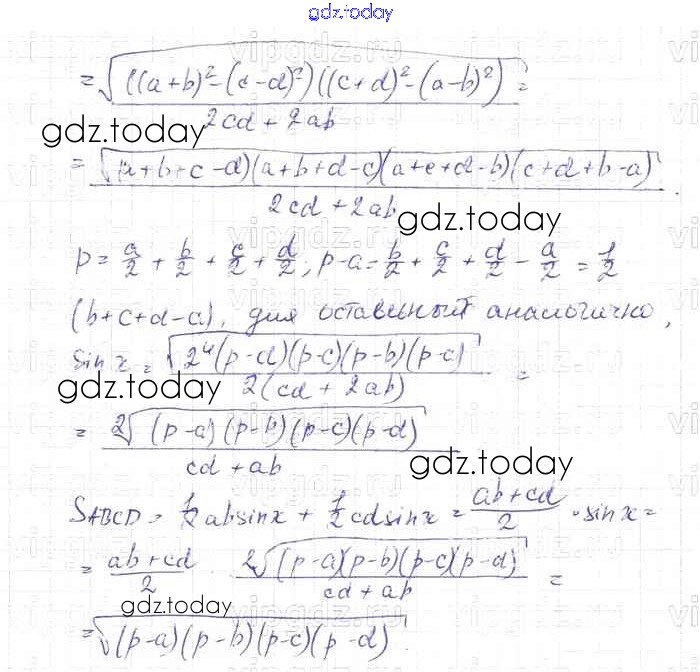 gdz.today
= √((a+b)²-(c-d)²)((c+d)²-(a-b)²) =
2cd+2ab
gdz.today
= √(a+b+c-d)(a+b+d-c)(a+c+d-b)(c+d+b-a) .
2cd+2ab
gdz.today
p = a/2 + b/2 + c/2 + d/2; p-a = b/2 + c/2 + d/2 - a/2 = 1/2
(b+c+d-a), для остальных аналогично,
sin x = √2⁴(p-d)(p-c)(p-b)(p-a) =
2(cd+2ab)
gdz.today
= 2√(p-a)(p-b)(p-c)(p-d)
cd+ab
gdz.today
SABCD = 1/2 ab sin x + 1/2 cd sin x = ab+cd/2 · sin x =
= ab+cd/2 · 2√(p-a)(p-b)(p-c)(p-d) =
cd+ab
gdz.today
= √(p-a)(p-b)(p-c)(p-d) .